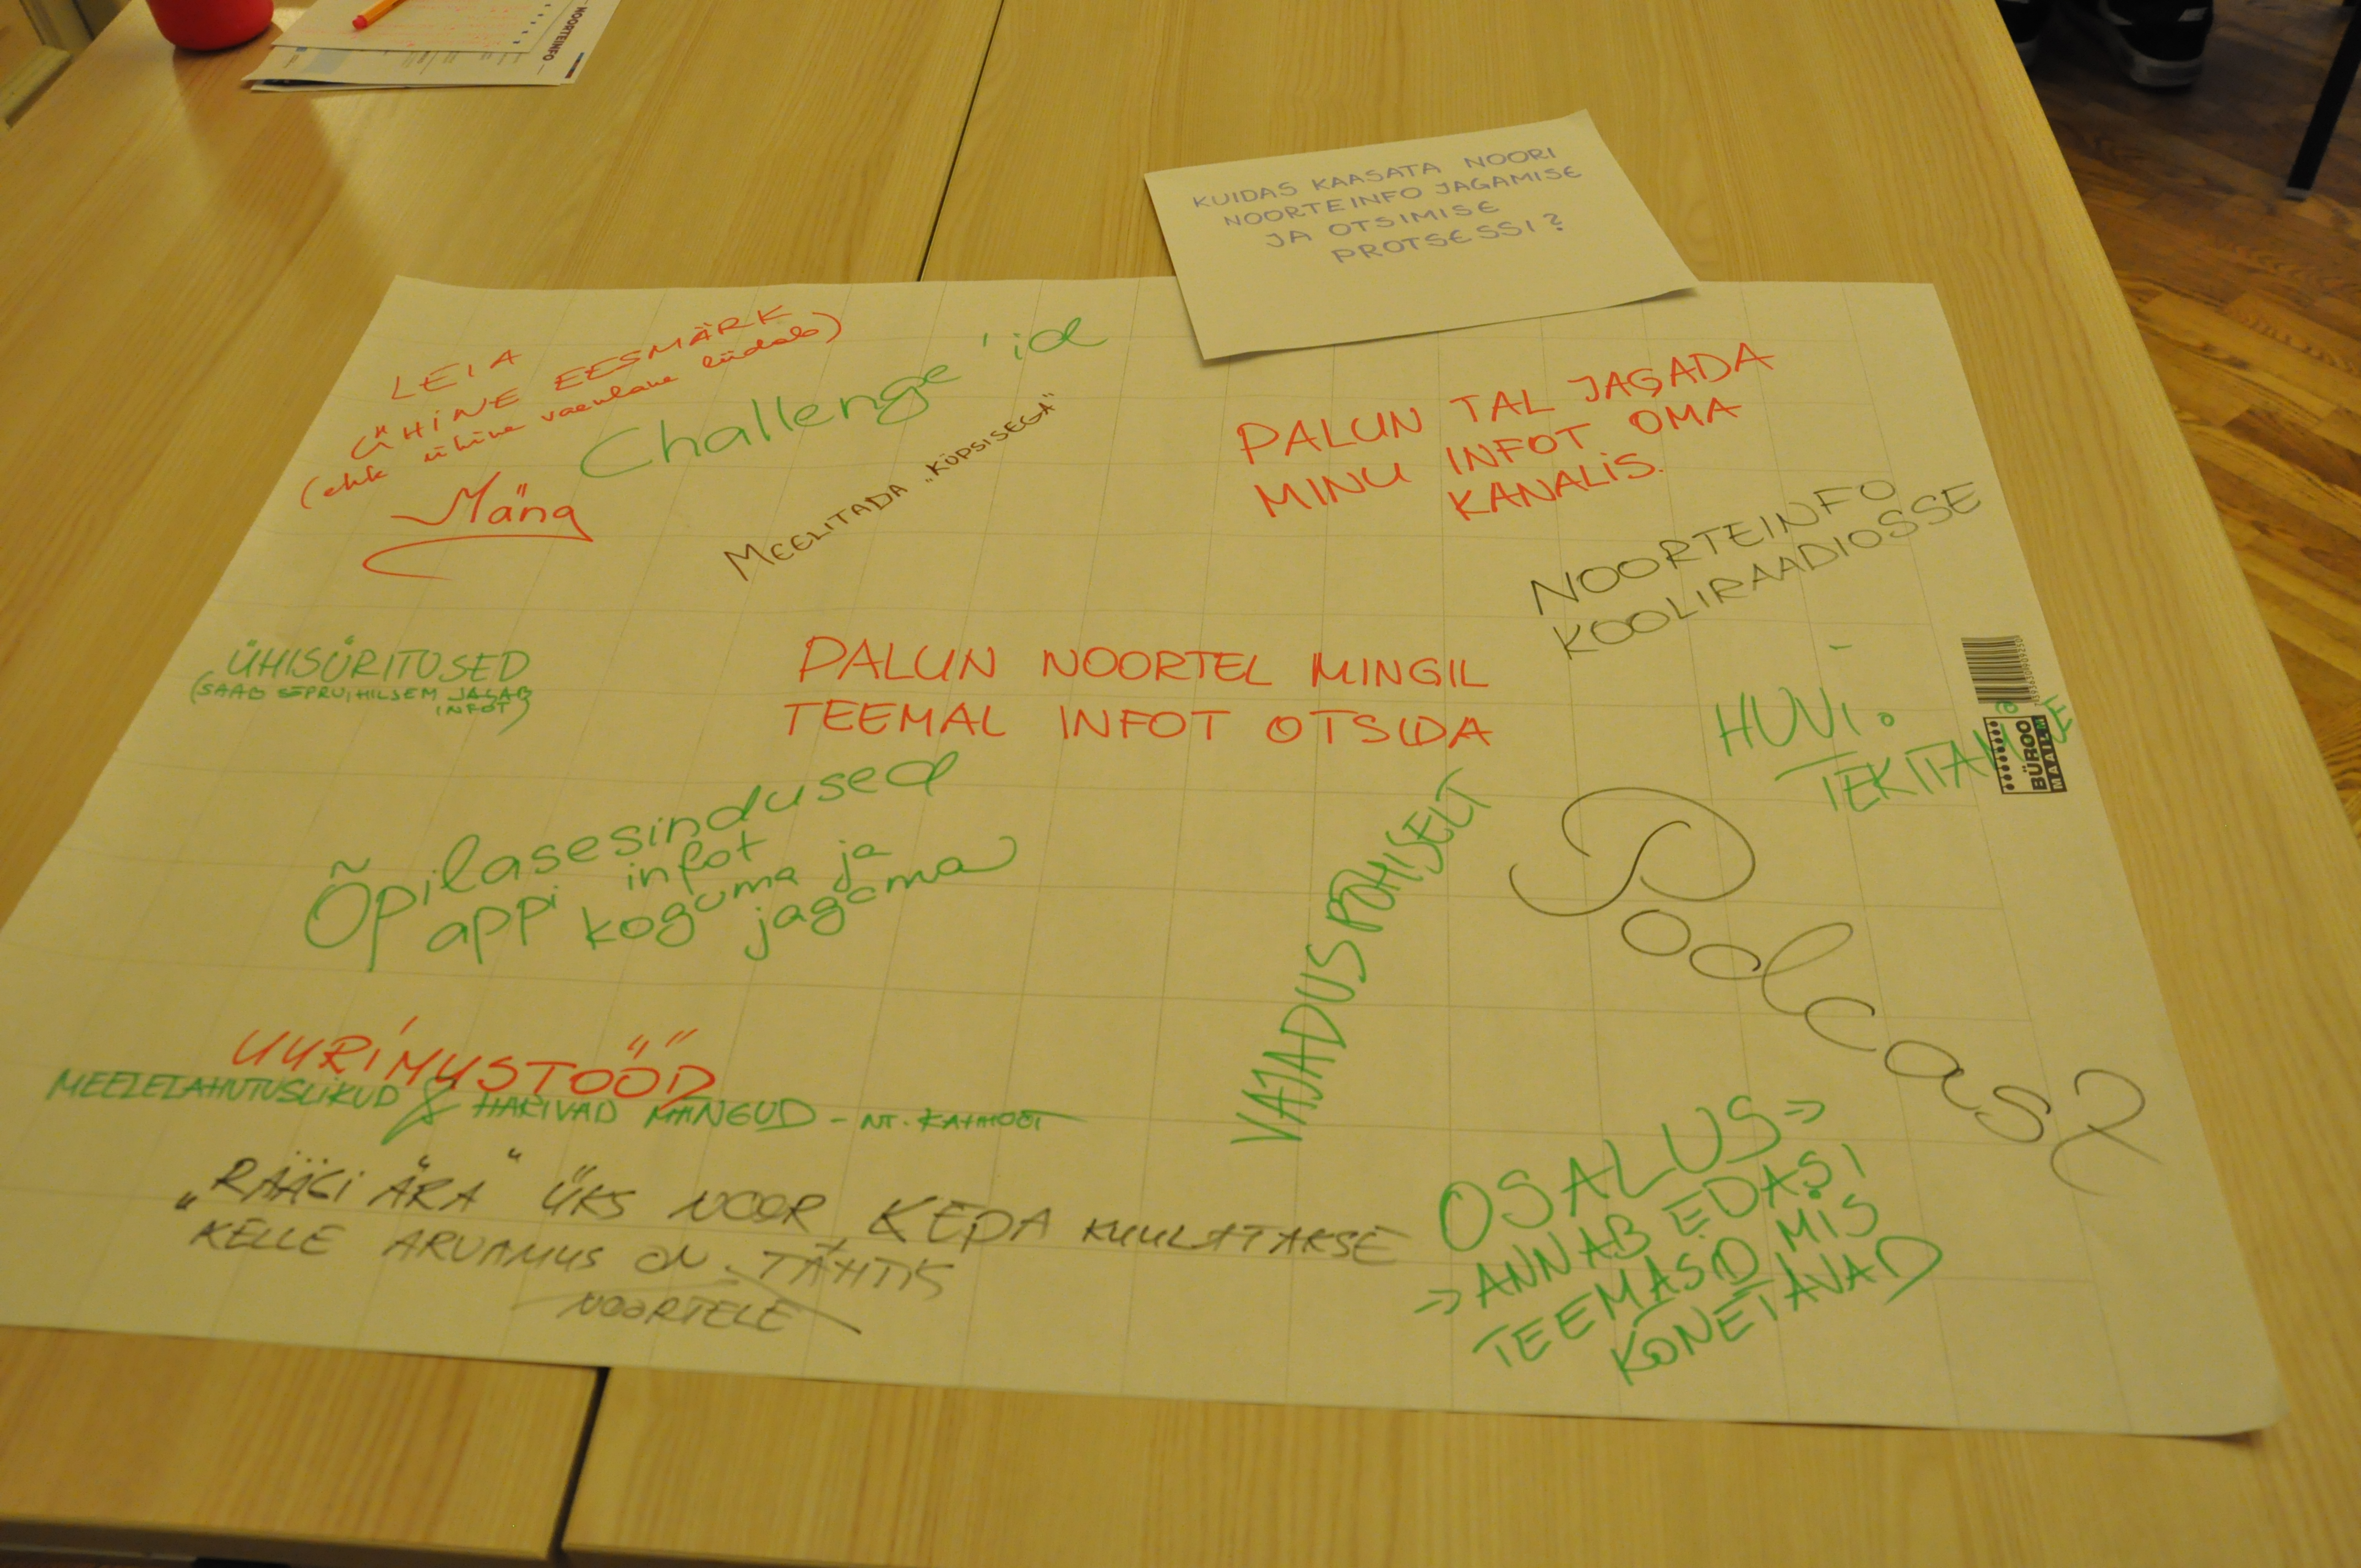 NOORTEINFO
KUIDAS KAASATA NOORI
NOORTEINFO JAGAMISE
JA OTSIMISE
PROTSESSI?
LEIA
ÜHINE EESMÄRK
(ehk ühine vaenlane liidab)
Mäng
Challenge'id
MEELITADA „KÜPSISEGA"
PALUN TAL JAGADA
MINU INFOT OMA
KANALIS.
NOORTEINFO
KOOLIRAADIOSSE
ÜHISÜRITUSED
(SAAB SÕPRU, HILJEM JAGAB
INFOT)
PALUN NOORTEL MINGIL
TEEMAL INFOT OTSIDA
HUVI
TEKITAMINE
BÜROO
MAAILM
Õpilasesindused
appi infot
koguma ja
jagama
VAJADUSPÕHISELT
Podcast
UURIMUSTÖÖD
MEELELAHUTUSLIKUD & HARIVAD MÄNGUD - NT. KAHOOT
„RÄÄGI ÄRA" ÜKS NOOR, KEDA KUULATAKSE
KELLE ARVAMUS ON TÄHTIS
NOORTELE
OSALUS =>
=> ANNAB EDASI
TEEMASID MIS
KÕNETAVAD